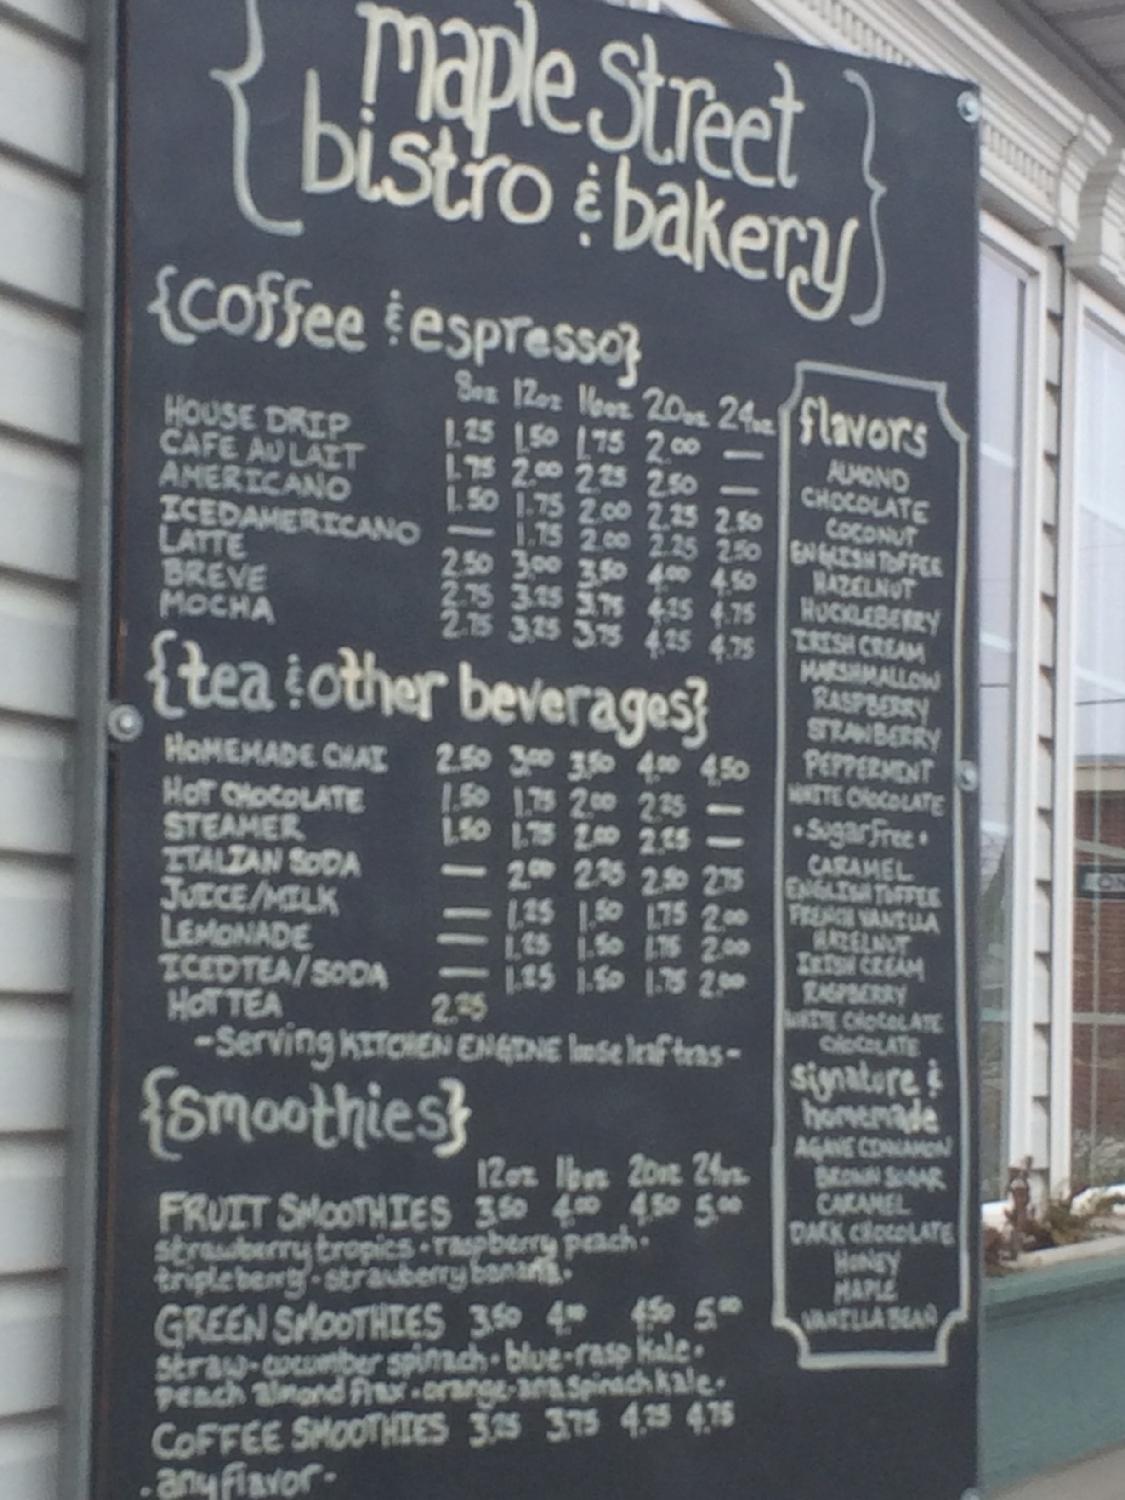 maple street
bistro & bakery
{coffee & espresso}
8oz 12oz 16oz 20oz 24oz
HOUSE DRIP 1.25 1.50 1.75 2.00 —
CAFE AU LAIT 1.75 2.00 2.25 2.50 —
AMERICANO 1.50 1.75 2.00 2.25 2.50
ICED AMERICANO — 1.75 2.00 2.25 2.50
LATTE 2.50 3.00 3.50 4.00 4.50
BREVE 2.75 3.25 3.75 4.25 4.75
MOCHA 2.75 3.25 3.75 4.25 4.75
{tea & other beverages}
HOMEMADE CHAI 2.50 3.00 3.50 4.00 4.50
HOT CHOCOLATE 1.50 1.75 2.00 2.25 —
STEAMER 1.50 1.75 2.00 2.25 —
ITALIAN SODA — 2.00 2.25 2.50 2.75
JUICE/MILK — 1.25 1.50 1.75 2.00
LEMONADE — 1.25 1.50 1.75 2.00
ICED TEA/SODA — 1.25 1.50 1.75 2.00
HOT TEA 2.25
-Serving KITCHEN ENGINE loose leaf teas-
{smoothies}
12oz 16oz 20oz 24oz
FRUIT SMOOTHIES 3.50 4.00 4.50 5.00
strawberry tropics · raspberry peach ·
tripleberry · strawberry banana ·
GREEN SMOOTHIES 3.50 4.00 4.50 5.00
straw-cucumber spinach · blue-rasp kale ·
peach almond flax · orange-ana spinach kale ·
COFFEE SMOOTHIES 3.25 3.75 4.25 4.75
· any flavor ·
flavors
ALMOND
CHOCOLATE
COCONUT
ENGLISH TOFFEE
HAZELNUT
HUCKLEBERRY
IRISH CREAM
MARSHMALLOW
RASPBERRY
STRAWBERRY
PEPPERMINT
WHITE CHOCOLATE
· Sugar free ·
CARAMEL
ENGLISH TOFFEE
FRENCH VANILLA
HAZELNUT
IRISH CREAM
RASPBERRY
WHITE CHOCOLATE
CHOCOLATE
signature &
homemade
AGAVE CINNAMON
BROWN SUGAR
CARAMEL
DARK CHOCOLATE
HONEY
MAPLE
VANILLA BEAN